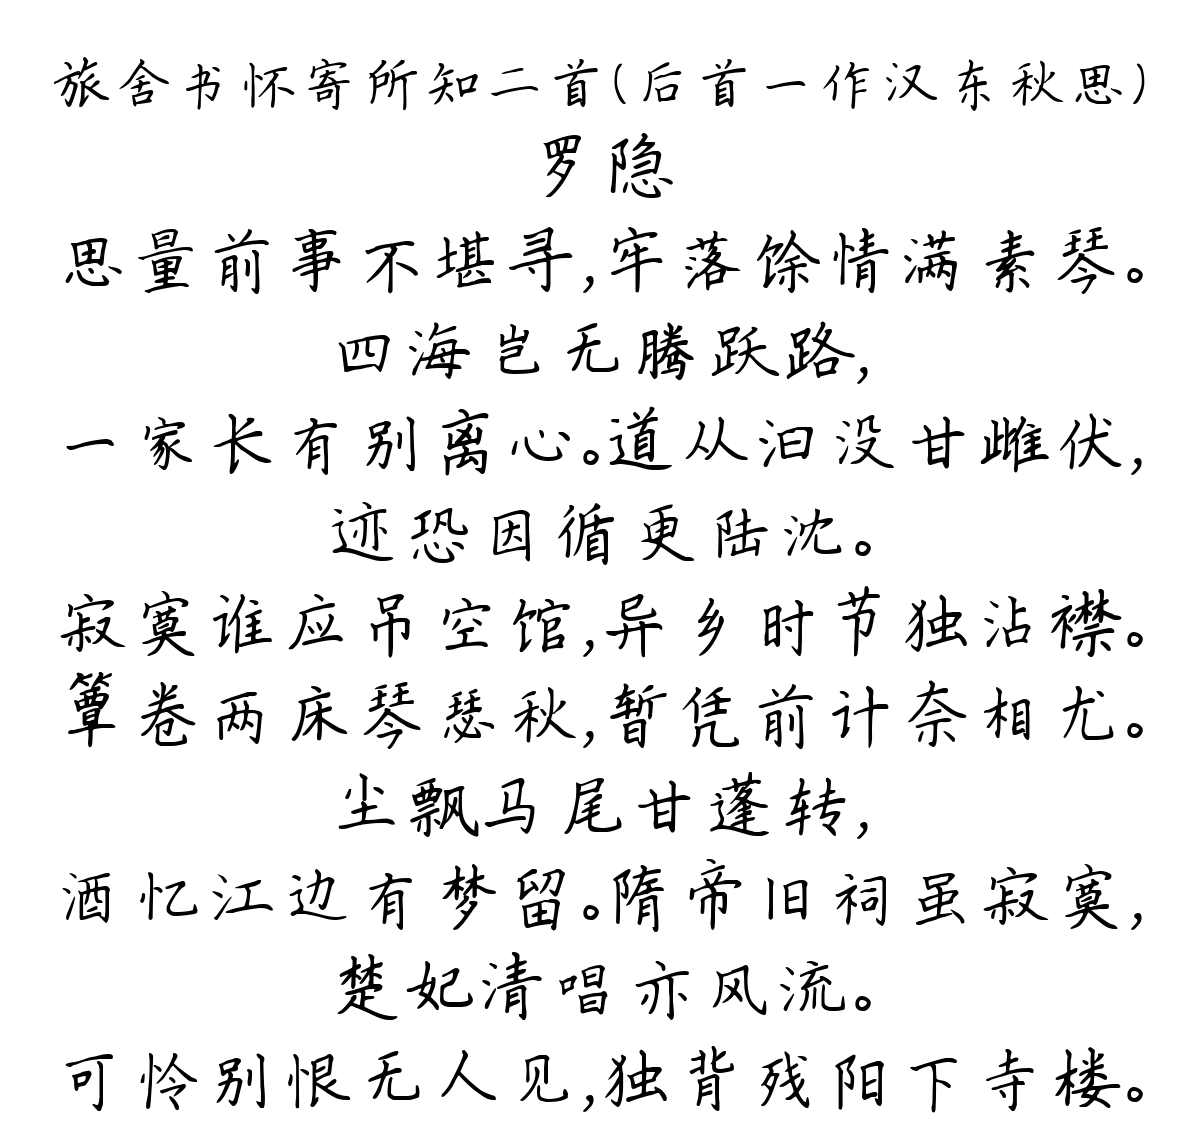 旅舍书怀寄所知二首(后首一作汉东秋思)
罗隐
思量前事不堪寻,牢落馀情满素琴。
四海岂无腾跃路,
一家长有别离心。道从汩没甘雌伏,
迹恐因循更陆沈。
寂寞谁应吊空馆,异乡时节独沾襟。
簟卷两床琴瑟秋,暂凭前计奈相尤。
尘飘马尾甘蓬转,
酒忆江边有梦留。隋帝旧祠虽寂寞,
楚妃清唱亦风流。
可怜别恨无人见,独背残阳下寺楼。